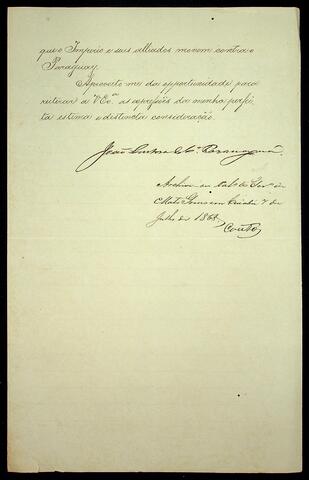 que o Imperio e seus alliados movem contra o
Paraguay.
Aproveito-me da opportunidade para
reiterar a V. Exª. as expressões da minha perfei-
ta estima e distincta consideração.
João
Archive-se
Matto Grosso em Cuiabá 7 de
Julho de 186
Couto